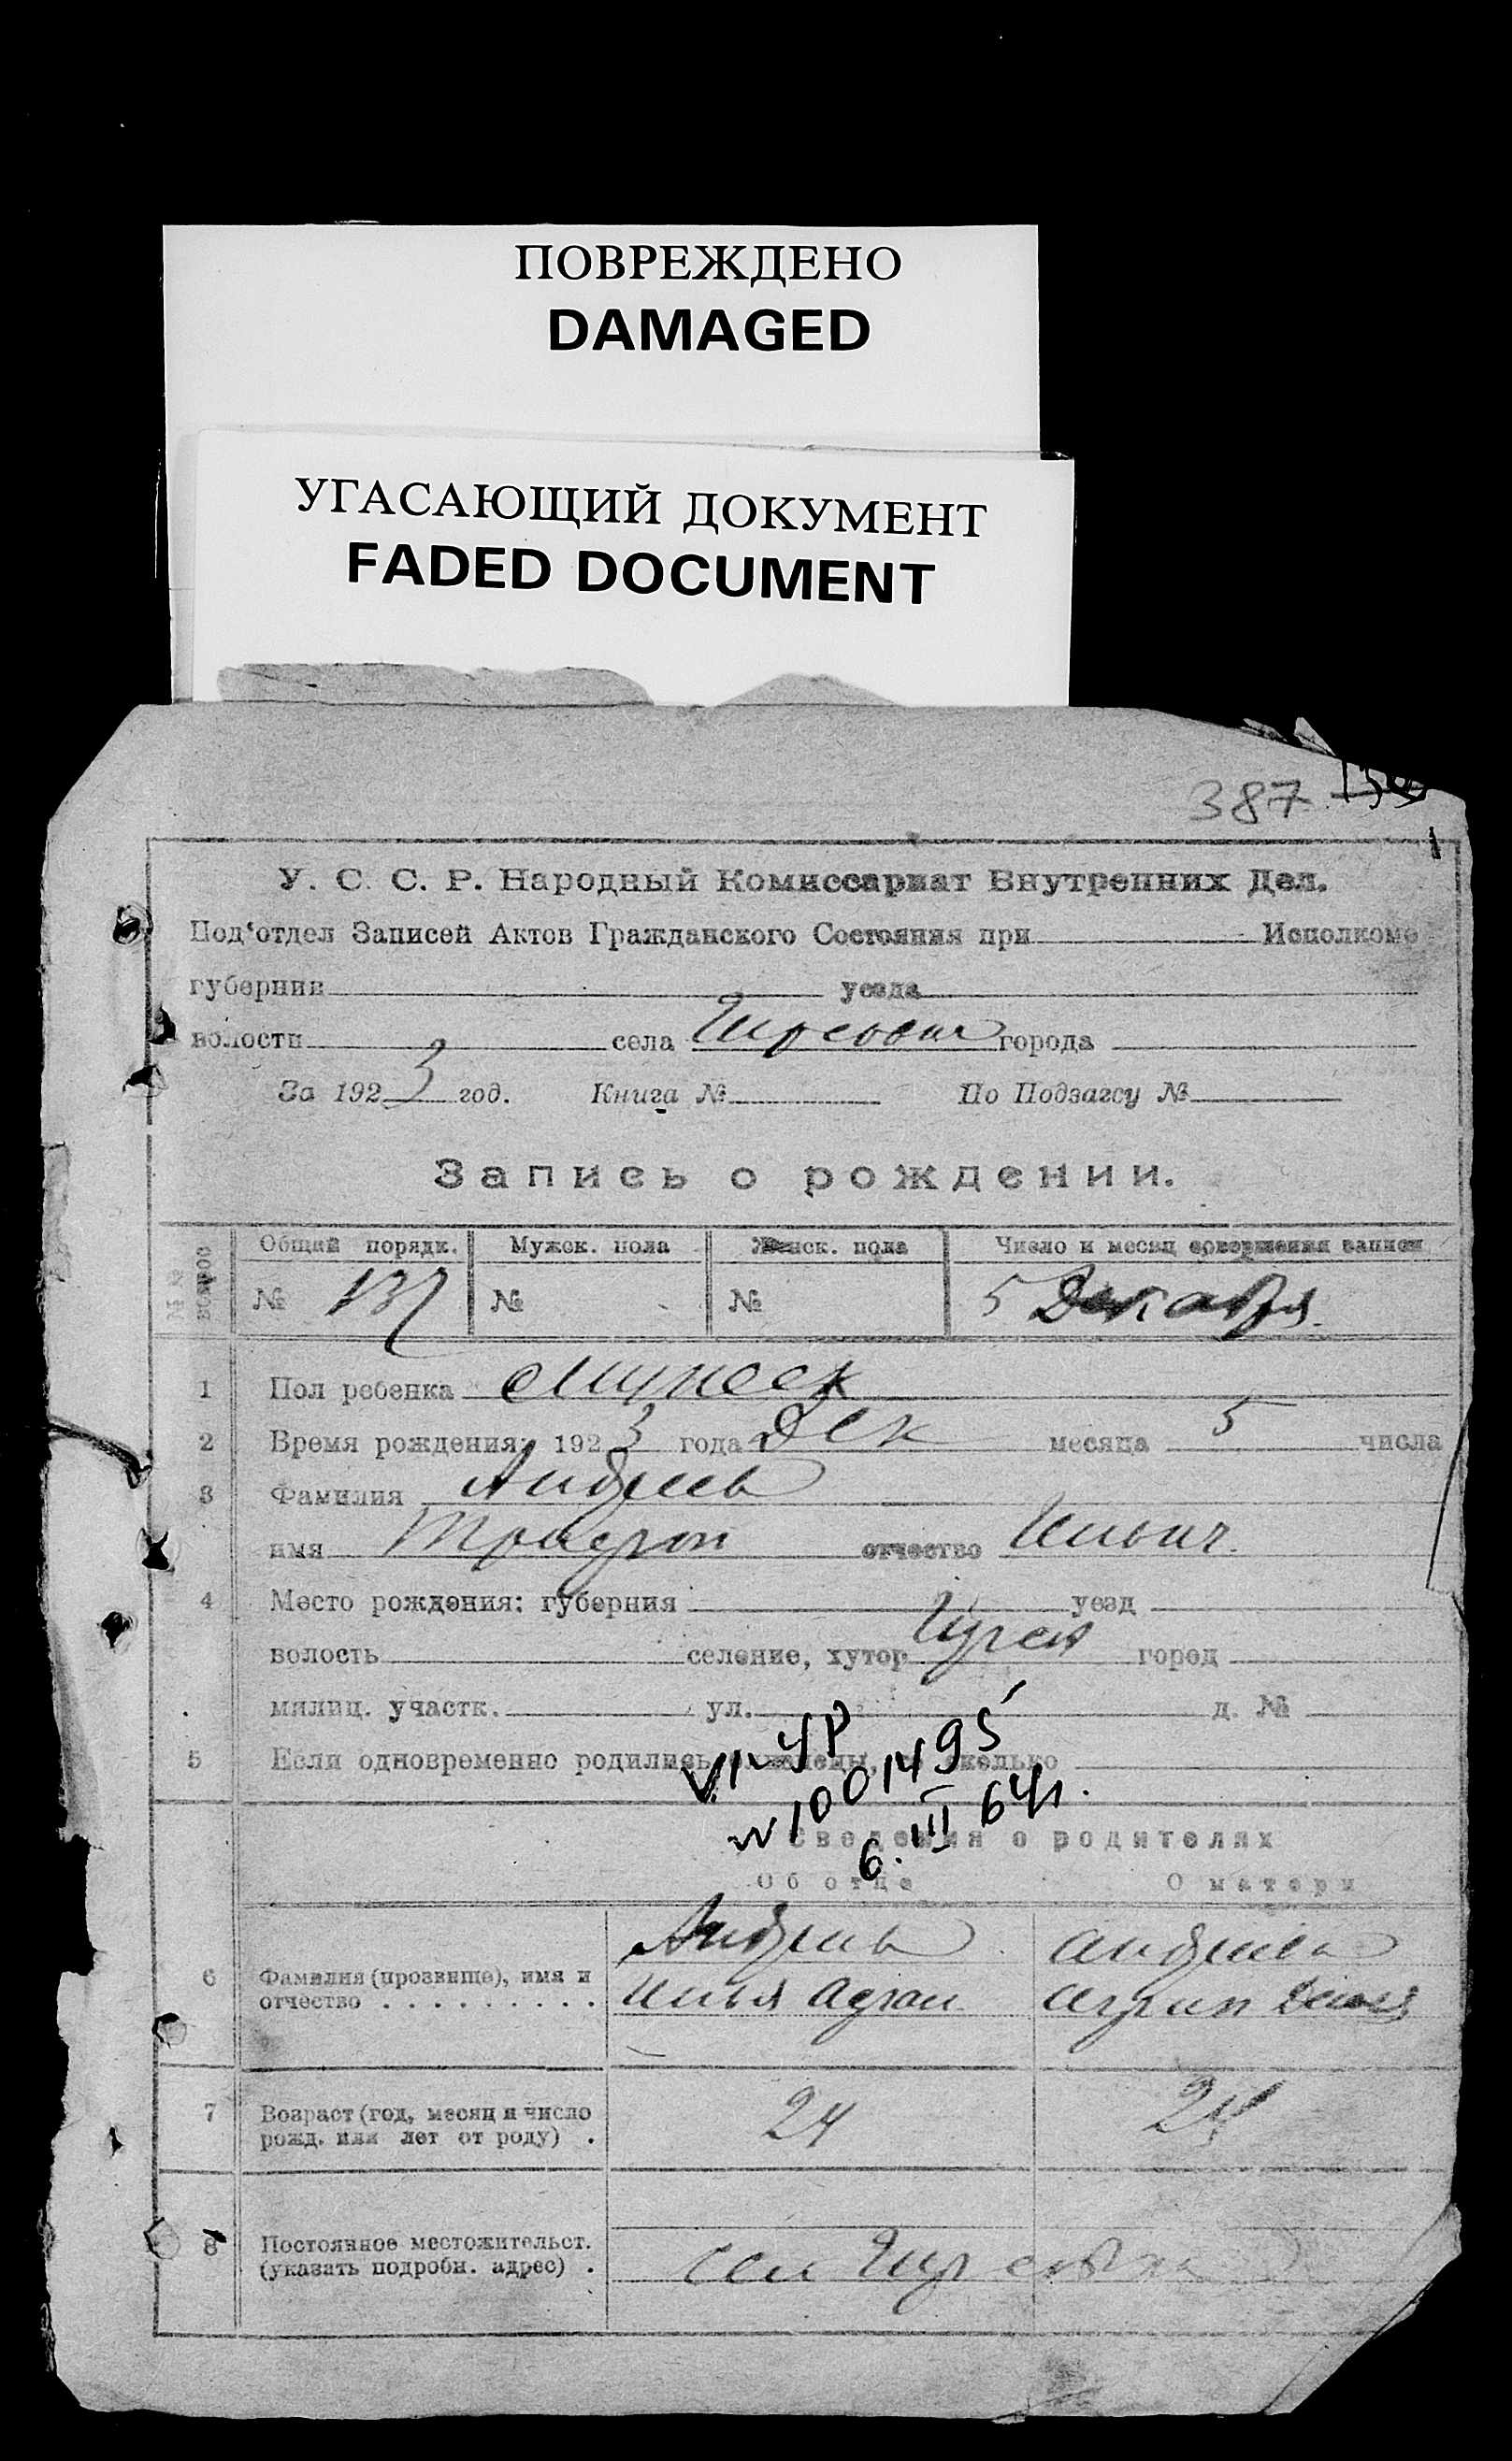 ПОВРЕЖДЕНО
DAMAGED
УГАСАЮЩИЙ ДОКУМЕНТ
FADED DOCUMENT
387
У. С. С. Р. Народный Комиссариат Внутренних Дел.
Под'отдел Записей Актов Гражданского Состояния при Исполкоме
губернии уезда
волости села города
За 1923 год. Книга № По Подзагсу №
Запись о рождении.
Общий порядк. Мужск. пола Женск. пола Число и месяц совершения записи
№ 137 № № 5 Декабря
1 Пол ребенка Мужеск
2 Время рождения: 1923 года Дек месяца 5 числа
3 Фамилия Андреев
имя отчество Ильич.
4 Место рождения: губерния уезд
волость селение, хутор город
милиц. участк. ул. д. №
5 Если одновременно родились близнецы, то сколько
VI-УР
№ 1001495
6. III 64г.
Сведения о родителях
Об отце О матери
6 Фамилия (прозвище), имя и отчество
Андреев
Илья
7 Возраст (год, месяц и число рожд. или лет от роду) . 24 24
8 Постоянное местожительст. (указать подробн. адрес) .